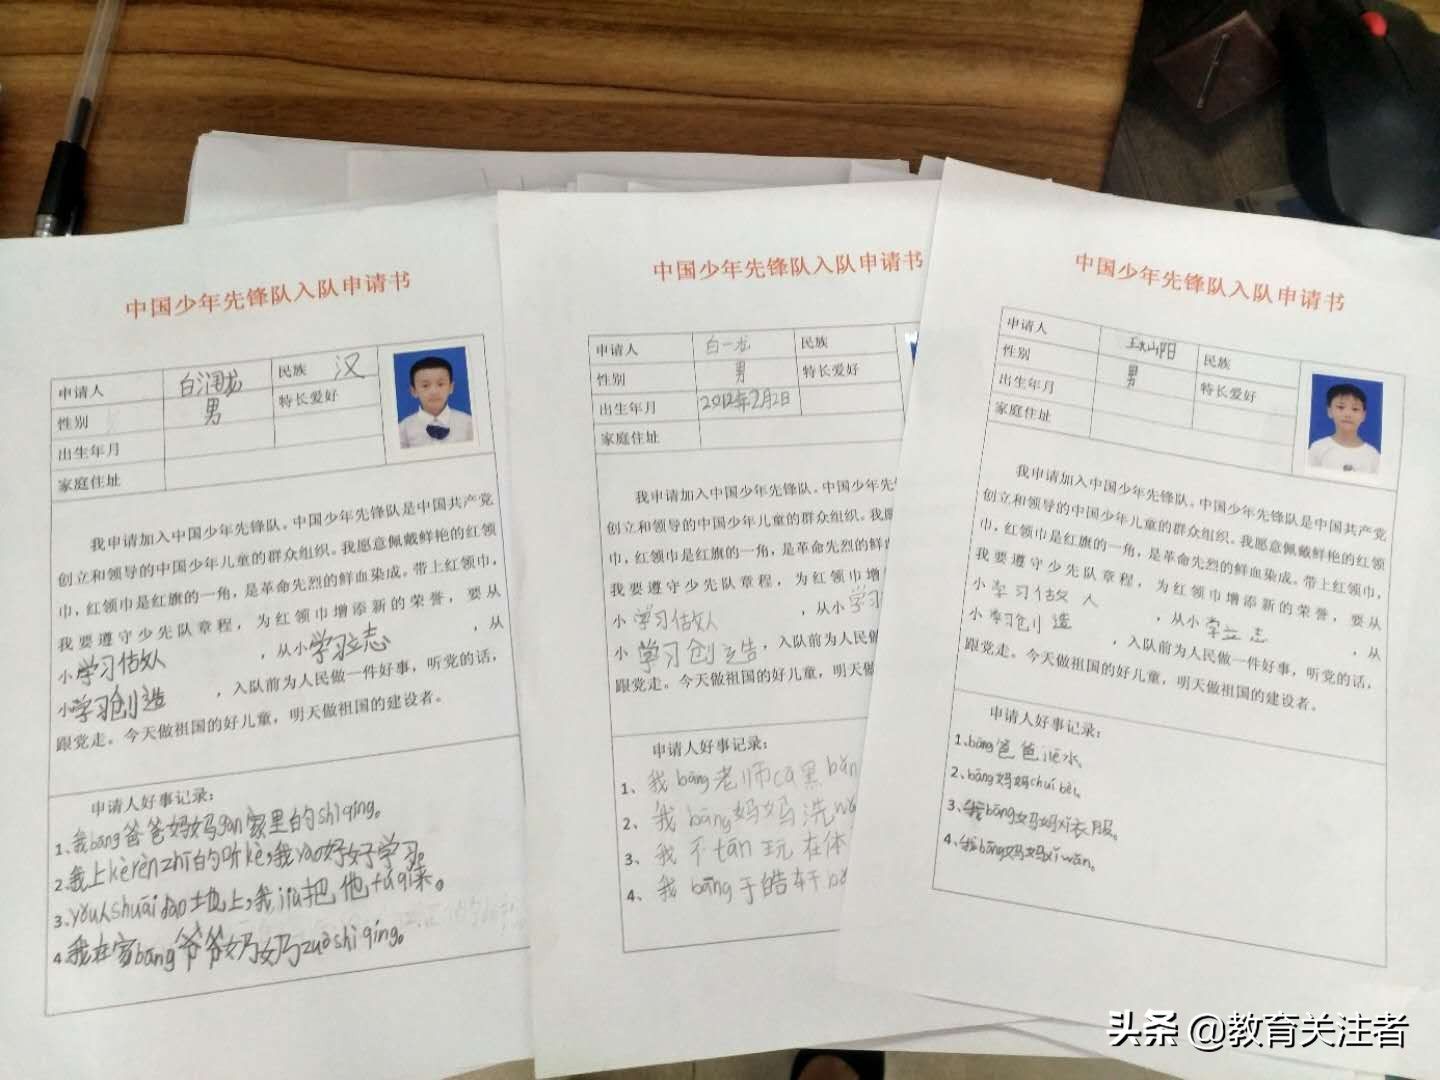 中国少年先锋队入队申请书
申请人 白润龙 民族 汉
性别 男 特长爱好
出生年月
家庭住址
我申请加入中国少年先锋队。中国少年先锋队是中国共产党
创立和领导的中国少年儿童的群众组织。我愿意佩戴鲜艳的红领
巾，红领巾是红旗的一角，是革命先烈的鲜血染成。带上红领巾，
我要遵守少先队章程，为红领巾增添新的荣誉，要从
小学习做人 ，从小学习立志 ，从
小学习创造 ，入队前为人民做一件好事，听党的话，
跟党走。今天做祖国的好儿童，明天做祖国的建设者。
申请人好事记录：
1、我bāng爸爸妈妈gàn家里的shìqing。
2、我上kèrènzhī的听kè，我yào好好学习。
3、yǒu人shuāi dǎo土地上，我jiù把他fú qǐ来。
4、我在家bāng爷爷奶奶zuò shì qing。
中国少年先锋队入队申请书
申请人 白一龙 民族
性别 男 特长爱好
出生年月 2012年2月2日
家庭住址
我申请加入中国少年先锋队。中国少年先
创立和领导的中国少年儿童的群众组织。我愿
巾，红领巾是红旗的一角，是革命先烈的鲜血
我要遵守少先队章程，为红领巾增
小学习做人 ，从小学习
小学习创造，入队前为人民做
跟党走。今天做祖国的好儿童，明天做祖国的
申请人好事记录：
1、我bāng老师cā黑bǎn
2、我bāng妈妈洗
3、我不tān玩在体
4、我bāng于皓轩
中国少年先锋队入队申请书
申请人 民族
性别 男 特长爱好
出生年月
家庭住址
我申请加入中国少年先锋队。中国少年先锋队是中国共产党
创立和领导的中国少年儿童的群众组织。我愿意佩戴鲜艳的红领
巾，红领巾是红旗的一角，是革命先烈的鲜血染成。带上红领巾，
我要遵守少先队章程，为红领巾增添新的荣誉，要从
小学习做人 ，从小学立志 ，从
小学习创造 ，入队前为人民做一件好事，听党的话，
跟党走。今天做祖国的好儿童，明天做祖国的建设者。
申请人好事记录：
1、bāng爸爸jiē水。
2、bāng妈妈chuí bèi。
3、我bāng妈妈xǐ衣服。
4、我bāng妈妈xǐ wǎn。
头条 @教育关注者